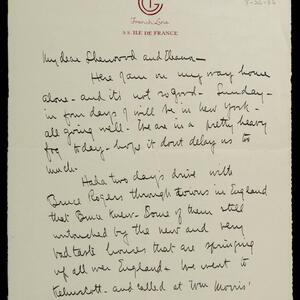 8-26-36
CGT
French Line
S.S. ILE DE FRANCE
My dear Sherwood and Eleanor—
Here I am on my way home
alone – and its not so good – Sunday –
in four days I will be in New York –
all going well – We are in a pretty heavy
fog today – hope it dont delay us to
much.
Had a two days drive with
Bruce Rogers through towns in England
that Bruce knew – Some of them still
untouched by the new and very
bad taste houses that are springing
up all over England – We went to
Kelmscott – and called at Wm Morris'